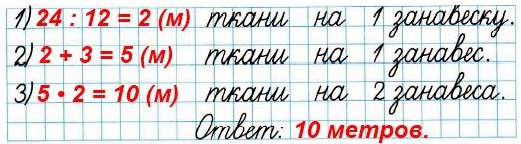 1) 24 : 12 = 2 (м) ткани на 1 занавеску.
2) 2 + 3 = 5 (м) ткани на 1 занавес.
3) 5 • 2 = 10 (м) ткани на 2 занавеса.
Ответ: 10 метров.